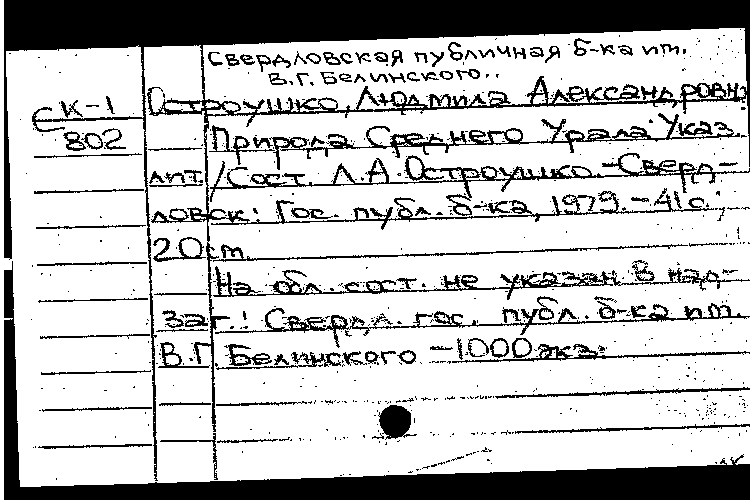 Свердловская публичная б-ка им.
В.Г. Белинского..
СК-1
802
Остроушко, Людмила Александровна
Природа Среднего Урала: Указ.
лит. / Сост. Л.А. Остроушко. - Сверд-
ловск: Гос. публ. б-ка, 1979. - 41 с.;
20 см.
На обл. сост. не указан. В над-
заг.: Свердл. гос. публ. б-ка им.
В.Г. Белинского - 1000 экз.